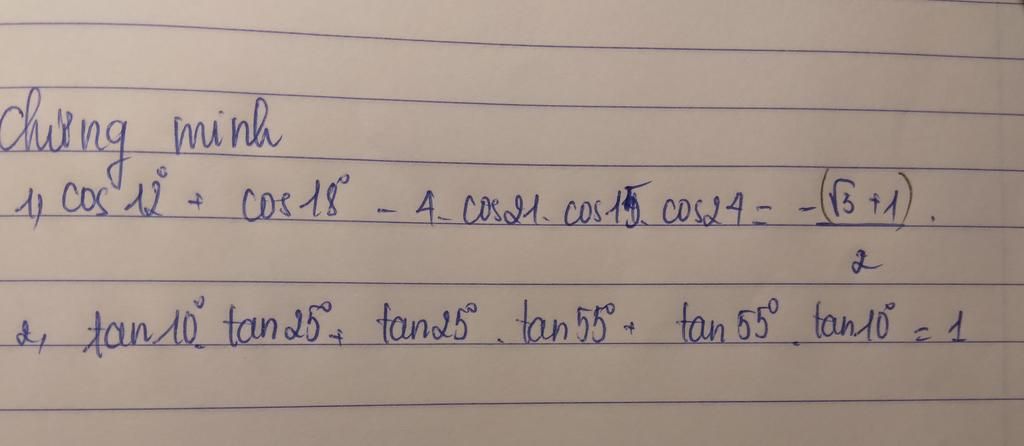 Chứng minh
1, cos 12° + cos 18° - 4. cos21. cos15. cos24 = -(√3 + 1)/2.
2, tan10°. tan25° + tan25°. tan55° + tan55°. tan10° = 1